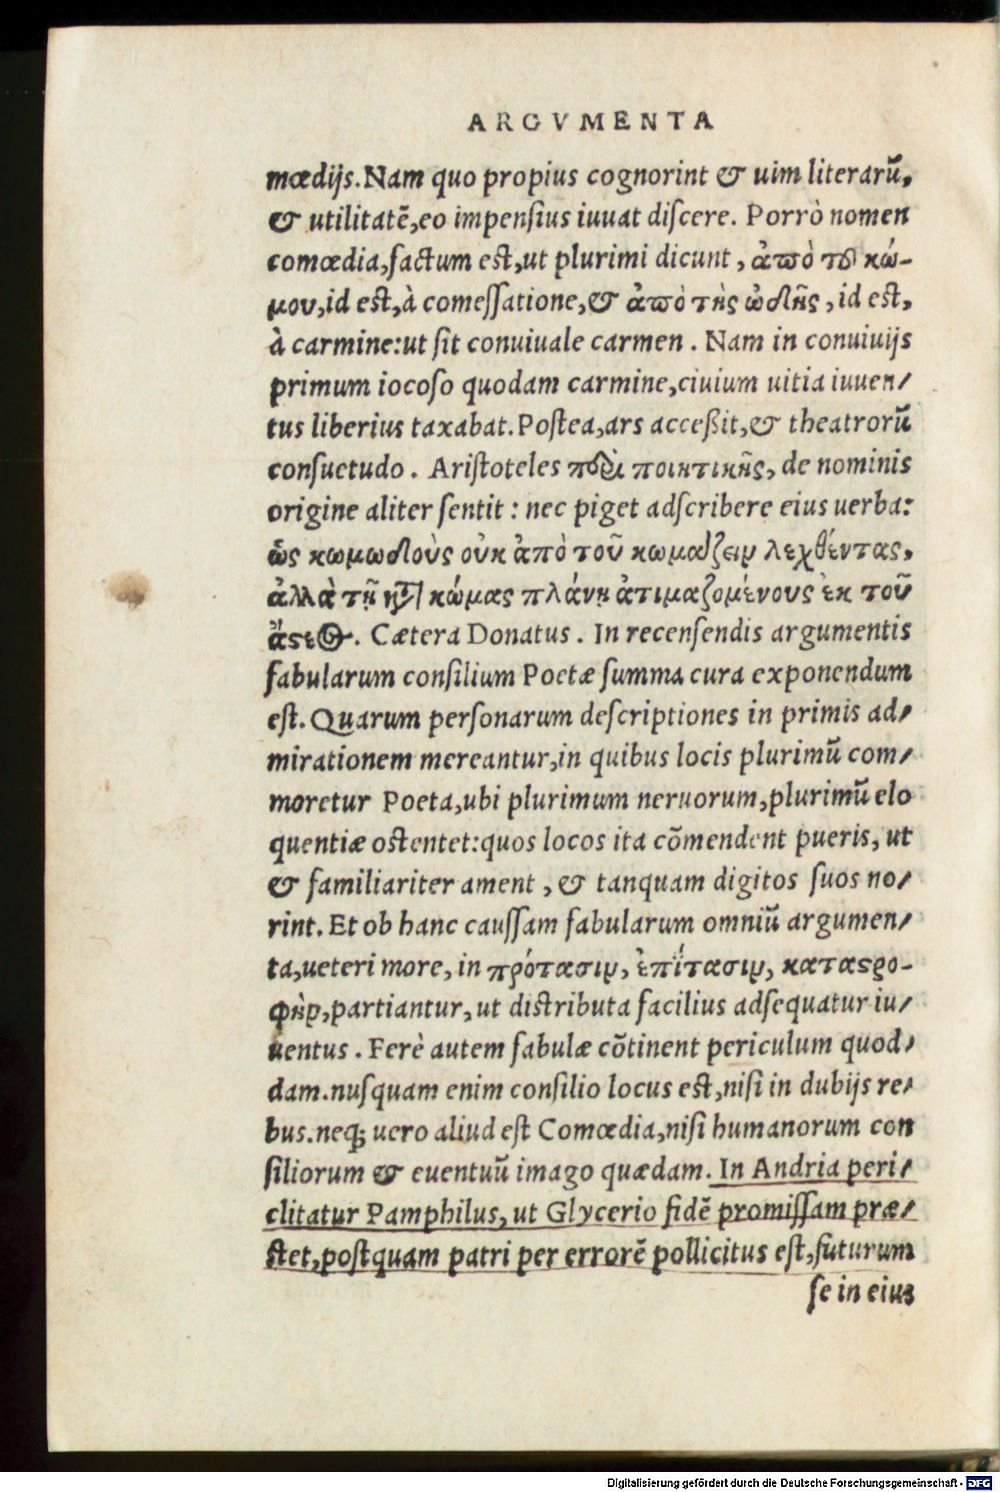 ARGVMENTA
mœdijs. Nam quo propius cognorint & uim literarũ,
& utilitatẽ, eo impensius iuuat discere. Porrò nomen
comœdia, factum est, ut plurimi dicunt, ἀπὸ τοῦ κώ-
μου, id est, à comessatione, & ἀπὸ τῆς ὠδῆς, id est,
à carmine: ut sit conuiuale carmen. Nam in conuiuijs
primum iocoso quodam carmine, ciuium uitia iuuen-
tus liberius taxabat. Postea, ars acceßit, & theatrorũ
consuetudo. Aristoteles περὶ ποιητικῆς, de nominis
origine aliter sentit: nec piget adscribere eius uerba:
ὡς κωμωδοὺς οὐκ ἀπὸ τοῦ κωμάζειν λεχθέντας,
ἀλλὰ τῇ κατὰ κώμας πλάνῃ ἀτιμαζομένους ἐκ τοῦ
ἄστεος. Cætera Donatus. In recensendis argumentis
fabularum consilium Poetæ summa cura exponendum
est. Quarum personarum descriptiones in primis ad-
mirationem mereantur, in quibus locis plurimũ com-
moretur Poeta, ubi plurimum neruorum, plurimũ elo
quentiæ ostentet: quos locos ita cõmendent pueris, ut
& familiariter ament, & tanquam digitos suos no-
rint. Et ob hanc caussam fabularum omniũ argumen-
ta, ueteri more, in πρότασιν, ἐπίτασιν, καταστρο-
φὴν, partiantur, ut distributa facilius adsequatur iu-
uentus. Ferè autem fabulæ cõtinent periculum quod-
dam. nusquam enim consilio locus est, nisi in dubijs re-
bus. neq; uero aliud est Comœdia, nisi humanorum con
siliorum & euentuũ imago quædam. In Andria peri-
clitatur Pamphilus, ut Glycerio fidẽ promissam præ-
stet, postquam patri per errorẽ pollicitus est, futurum
se in eius
Digitalisierung gefördert durch die Deutsche Forschungsgemeinschaft - DFG